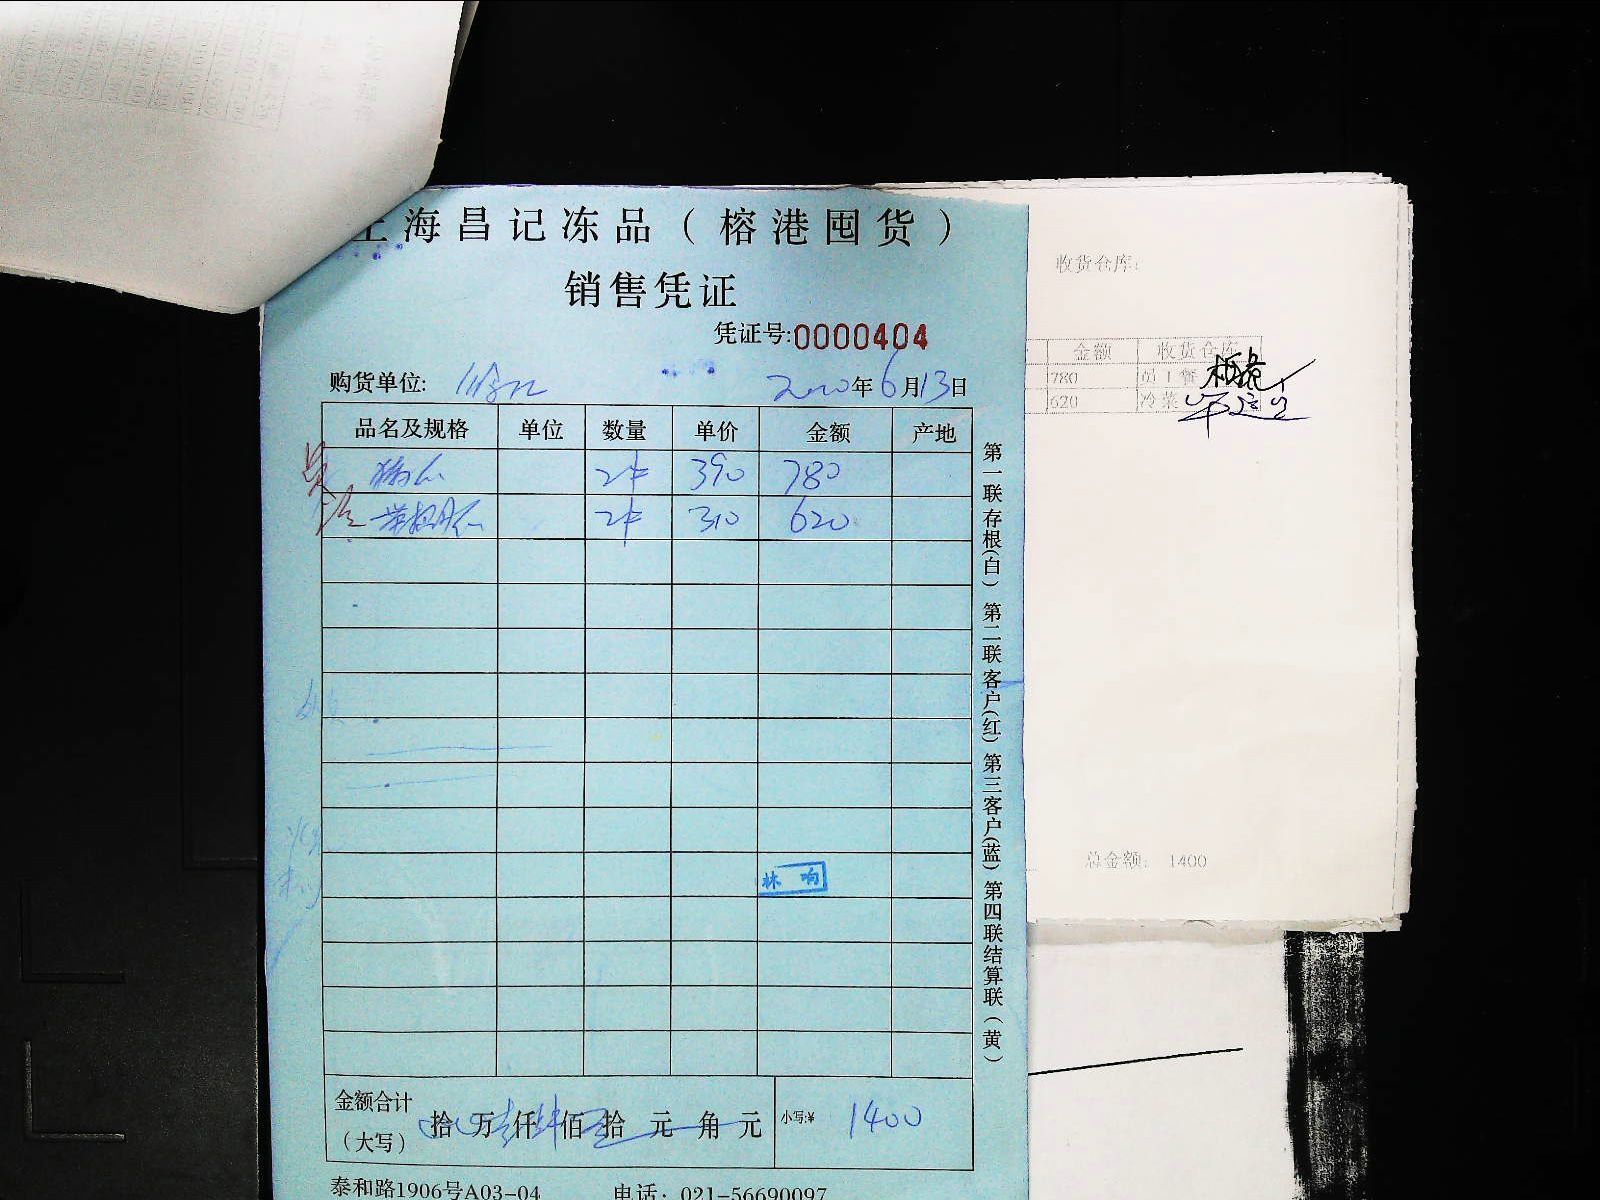 上海昌记冻品（榕港囤货）
销售凭证
凭证号:0000404
购货单位:
2020年6月13日
品名及规格 单位 数量 单价 金额 产地
2件 390 780
2件 310 620
林 响
金额合计（大写） 拾 万 仟 佰 拾 元 角 元 小写:¥ 1400
泰和路1906号A03-04 电话：021-56690097
第一联存根(白) 第二联客户(红) 第三客户(蓝) 第四联结算联(黄)
收货仓库:
金额 收货仓库
780 员工餐
620 冷菜
总金额: 1400